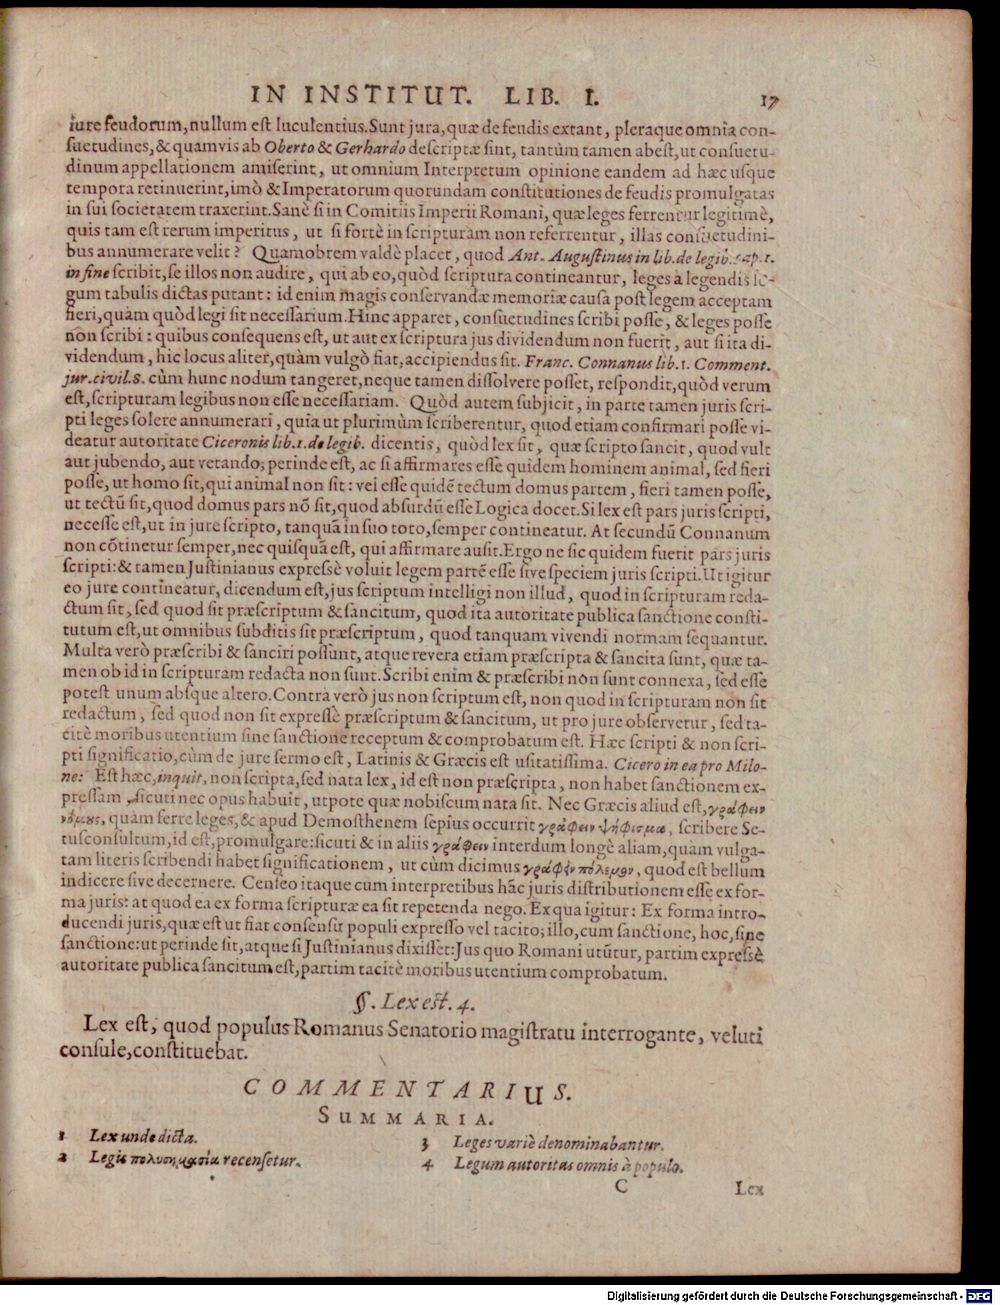 IN INSTITUT. LIB. I. 17
iure feudorum, nullum est luculentius. Sunt jura, quæ de feudis extant, pleraque omnia con-
suetudines, & quamvis ab Oberto & Gerhardo descriptæ sint, tantùm tamen abest, ut consuetu-
dinum appellationem amiserint, ut omnium Interpretum opinione eandem ad hæc usque
tempora retinuerint, imò & Imperatorum quorundam constitutiones de feudis promulgatas
in sui societatem traxerint. Sanè si in Comitiis Imperii Romani, quæ leges ferrentur legitimè,
quis tam est rerum imperitus, ut si fortè in scripturam non referrentur, illas consuetudini-
bus annumerare velit? Quamobrem valdè placet, quod Ant. Augustinus in lib. de legib. cap. 1.
in fine scribit, se illos non audire, qui ab eo, quòd scriptura contineantur, leges à legendis le-
gum tabulis dictas putant: id enim magis conservandæ memoriæ causa post legem acceptam
fieri, quàm quòd legi sit necessarium. Hinc apparet, consuetudines scribi posse, & leges posse
non scribi: quibus consequens est, ut aut ex scriptura jus dividendum non fuerit, aut si ita di-
videndum, hic locus aliter, quàm vulgò fiat, accipiendus sit. Franc. Connanus lib. 1. Comment.
jur. civil. 8. cùm hunc nodum tangeret, neque tamen dissolvere posset, respondit, quòd verum
est, scripturam legibus non esse necessariam. Quòd autem subjicit, in parte tamen juris scri-
pti leges solere annumerari, quia ut plurimùm scriberentur, quod etiam confirmari posse vi-
deatur autoritate Ciceronis lib. 1. de legib. dicentis, quòd lex sit, quæ scripto sancit, quod vult
aut jubendo, aut vetando; perinde est, ac si affirmares esse quidem hominem animal, sed fieri
posse, ut homo sit, qui animal non sit: vel esse quidẽ tectum domus partem, fieri tamen posse,
ut tectũ sit, quod domus pars nõ sit, quod absurdũ esse Logica docet. Si lex est pars juris scripti,
necesse est, ut in jure scripto, tanquã in suo toto, semper contineatur. At secundũ Connanum
non cõtinetur semper, nec quisquã est, qui affirmare ausit. Ergo ne sic quidem fuerit pars juris
scripti: & tamen Justinianus expressè voluit legem partẽ esse sive speciem juris scripti. Ut igitur
eo jure contineatur, dicendum est, jus scriptum intelligi non illud, quod in scripturam reda-
ctum sit, sed quod sit præscriptum & sancitum, quod ita autoritate publica sanctione consti-
tutum est, ut omnibus subditis sit præscriptum, quod tanquam vivendi normam sequantur.
Multa verò præscribi & sanciri possunt, atque revera etiam præscripta & sancita sunt, quæ ta-
men ob id in scripturam redacta non sunt. Scribi enim & præscribi non sunt connexa, sed esse
potest unum absque altero. Contrà verò jus non scriptum est, non quod in scripturam non sit
redactum, sed quod non sit expressè præscriptum & sancitum, ut pro jure observetur, sed ta-
citè moribus utentium sine sanctione receptum & comprobatum est. Hæc scripti & non scri-
pti significatio, cùm de jure sermo est, Latinis & Græcis est usitatissima. Cicero in ea pro Milo-
ne: Est hæc, inquit, non scripta, sed nata lex, id est non præscripta, non habet sanctionem ex-
pressam, sicuti nec opus habuit, utpote quæ nobiscum nata sit. Nec Græcis aliud est, γράφειν
νόμους, quàm ferre leges, & apud Demosthenem sepius occurrit γράφειν ψήφισμα, scribere Se-
tusconsultum, id est, promulgare: sicuti & in aliis γράφειν interdum longè aliam, quàm vulga-
tam literis scribendi habet significationem, ut cùm dicimus γράφειν πόλεμον, quod est bellum
indicere sive decernere. Censeo itaque cum interpretibus hãc juris distributionem esse ex for-
ma juris: at quod ea ex forma scripturæ ea sit repetenda nego. Ex qua igitur: Ex forma intro-
ducendi juris, quæ est ut fiat consensu populi expresso vel tacito; illo, cum sanctione, hoc, sine
sanctione: ut perinde sit, atque si Justinianus dixisset: Jus quo Romani utũtur, partim expressè
autoritate publica sancitum est, partim tacitè moribus utentium comprobatum.
§. Lex est. 4.
Lex est, quod populus Romanus Senatorio magistratu interrogante, veluti
consule, constituebat.
COMMENTARIUS.
SUMMARIA.
1 Lex unde dicta.
2 Legis πολυσημασία recensetur.
3 Leges variè denominabantur.
4 Legum autoritas omnis à populo.
C Lex
Digitalisierung gefördert durch die Deutsche Forschungsgemeinschaft - DFG